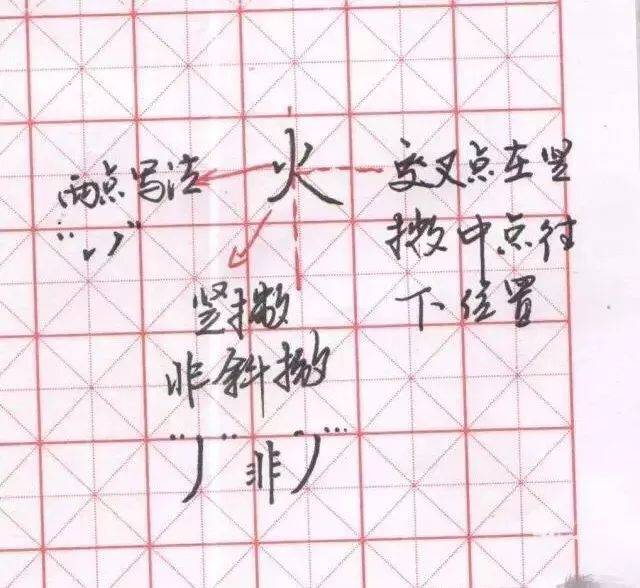 火
两点写法
交叉点在竖
撇中点往
下位置
竖撇
非斜撇
"丿"非"丿"